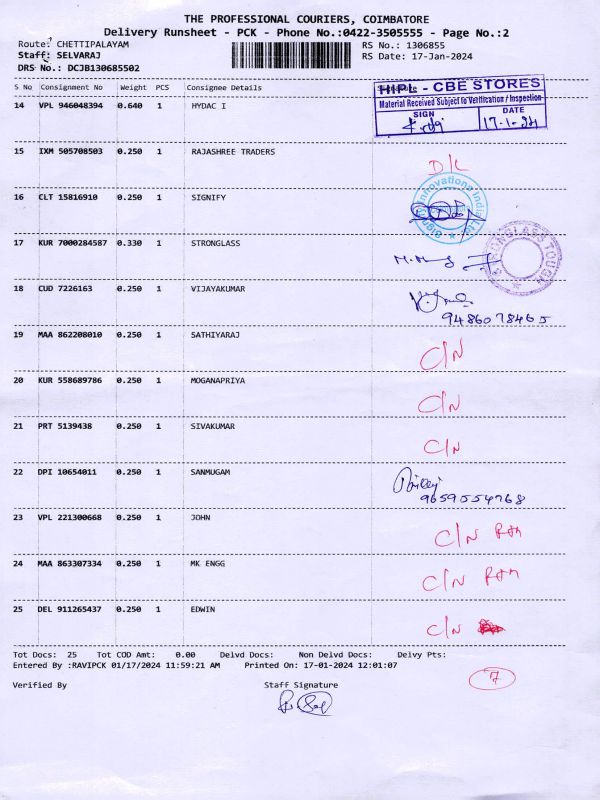 THE PROFESSIONAL COURIERS, COIMBATORE
Delivery Runsheet - PCK - Phone No.:0422-3505555 - Page No.:2
Route: CHETTIPALAYAM RS No.: 1306855
Staff: SELVARAJ RS Date: 17-Jan-2024
DRS No.: DCJB130685502
S No Consignment No Weight PCS Consignee Details
HIPL - CBE STORES
Material Received Subject to Verification / Inspection
SIGN DATE
17-1-24
14 VPL 946048394 0.640 1 HYDAC I
15 IXM 505708503 0.250 1 RAJASHREE TRADERS D/L
16 CLT 15816910 0.250 1 SIGNIFY
Signify Innovations India Ltd
17 KUR 7000284587 0.330 1 STRONGLASS
STRONGLASS TOUGH
18 CUD 7226163 0.250 1 VIJAYAKUMAR
9486078465
19 MAA 862208010 0.250 1 SATHIYARAJ C/N
20 KUR 558689786 0.250 1 MOGANAPRIYA C/N
21 PRT 5139438 0.250 1 SIVAKUMAR C/N
22 DPI 10654011 0.250 1 SANMUGAM
9659554768
23 VPL 221300668 0.250 1 JOHN C/N
24 MAA 863307334 0.250 1 MK ENGG C/N
25 DEL 911265437 0.250 1 EDWIN C/N
Tot Docs: 25 Tot COD Amt: 0.00 Delvd Docs: Non Delvd Docs: Delvy Pts:
Entered By :RAVIPCK 01/17/2024 11:59:21 AM Printed On: 17-01-2024 12:01:07
7
Verified By Staff Signature